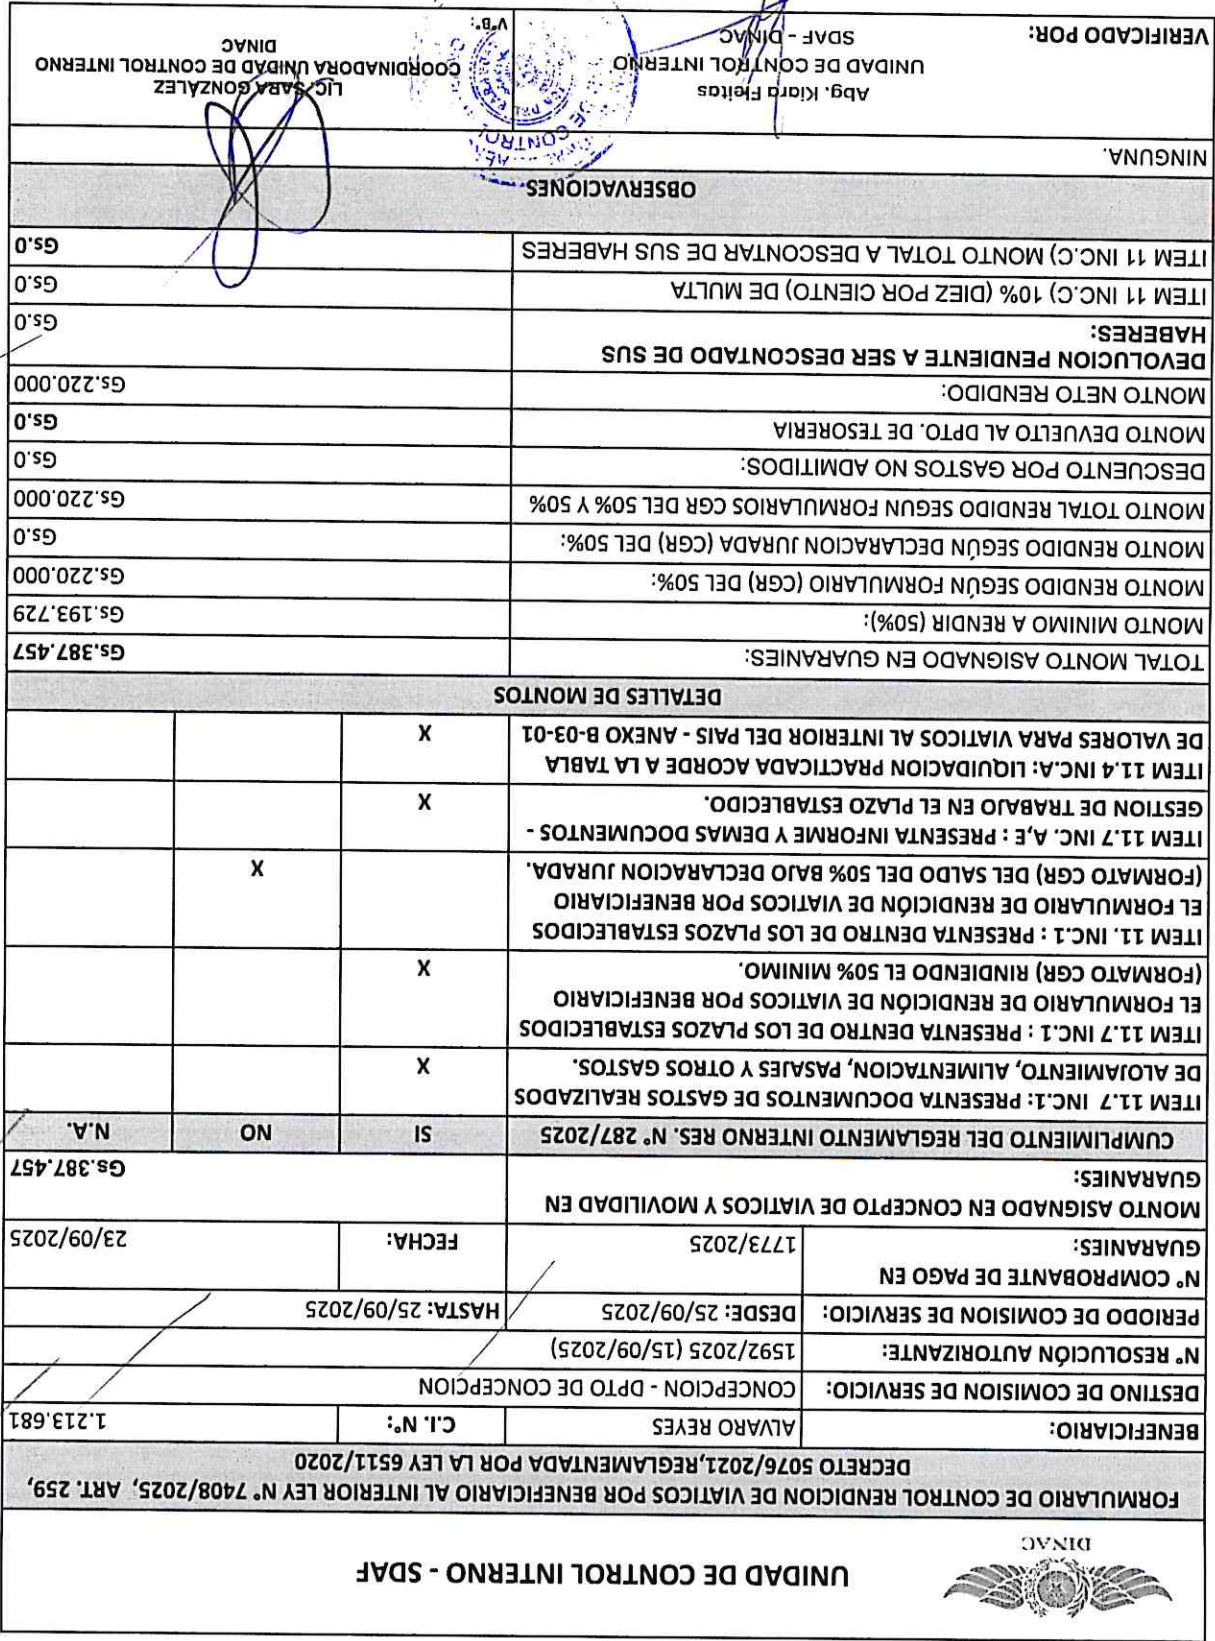 DINAC
UNIDAD DE CONTROL INTERNO - SDAF
FORMULARIO DE CONTROL RENDICION DE VIATICOS POR BENEFICIARIO AL INTERIOR LEY N° 7408/2025, ART. 259,
DECRETO 5076/2021,REGLAMENTADA POR LA LEY 6511/2020
BENEFICIARIO: ALVARO REYES C.I. N°: 1.213.681
DESTINO DE COMISION DE SERVICIO: CONCEPCION - DPTO DE CONCEPCION
N° RESOLUCIÓN AUTORIZANTE: 1592/2025 (15/09/2025)
PERIODO DE COMISION DE SERVICIO: DESDE: 25/09/2025 HASTA: 25/09/2025
N° COMPROBANTE DE PAGO EN
GUARANIES: 1773/2025 FECHA: 23/09/2025
MONTO ASIGNADO EN CONCEPTO DE VIATICOS Y MOVILIDAD EN
GUARANIES: Gs.387.457
CUMPLIMIENTO DEL REGLAMENTO INTERNO RES. N° 287/2025 SI NO N.A.
ITEM 11.7 INC.1: PRESENTA DOCUMENTOS DE GASTOS REALIZADOS
DE ALOJAMIENTO, ALIMENTACION, PASAJES Y OTROS GASTOS. X
ITEM 11.7 INC.1 : PRESENTA DENTRO DE LOS PLAZOS ESTABLECIDOS
EL FORMULARIO DE RENDICIÓN DE VIATICOS POR BENEFICIARIO
(FORMATO CGR) RINDIENDO EL 50% MINIMO. X
ITEM 11. INC.1 : PRESENTA DENTRO DE LOS PLAZOS ESTABLECIDOS
EL FORMULARIO DE RENDICIÓN DE VIATICOS POR BENEFICIARIO
(FORMATO CGR) DEL SALDO DEL 50% BAJO DECLARACION JURADA. X
ITEM 11.7 INC. A,E : PRESENTA INFORME Y DEMAS DOCUMENTOS -
GESTION DE TRABAJO EN EL PLAZO ESTABLECIDO. X
ITEM 11.4 INC.A: LIQUIDACION PRACTICADA ACORDE A LA TABLA
DE VALORES PARA VIATICOS AL INTERIOR DEL PAIS - ANEXO B-03-01 X
DETALLES DE MONTOS
TOTAL MONTO ASIGNADO EN GUARANIES: Gs.387.457
MONTO MINIMO A RENDIR (50%): Gs.193.729
MONTO RENDIDO SEGÚN FORMULARIO (CGR) DEL 50%: Gs.220.000
MONTO RENDIDO SEGÚN DECLARACION JURADA (CGR) DEL 50%: Gs.0
MONTO TOTAL RENDIDO SEGUN FORMULARIOS CGR DEL 50% Y 50% Gs.220.000
DESCUENTO POR GASTOS NO ADMITIDOS: Gs.0
MONTO DEVUELTO AL DPTO. DE TESORERIA Gs.0
MONTO NETO RENDIDO: Gs.220.000
DEVOLUCION PENDIENTE A SER DESCONTADO DE SUS
HABERES: Gs.0
ITEM 11 INC.C) 10% (DIEZ POR CIENTO) DE MULTA Gs.0
ITEM 11 INC.C) MONTO TOTAL A DESCONTAR DE SUS HABERES Gs.0
OBSERVACIONES
NINGUNA.
VERIFICADO POR:
Abg. Kiara Fleitas
UNIDAD DE CONTROL INTERNO
SDAF - DINAC
V°B°:
LIC. SARA GONZÁLEZ
COORDINADORA UNIDAD DE CONTROL INTERNO
DINAC
DE CONTROL